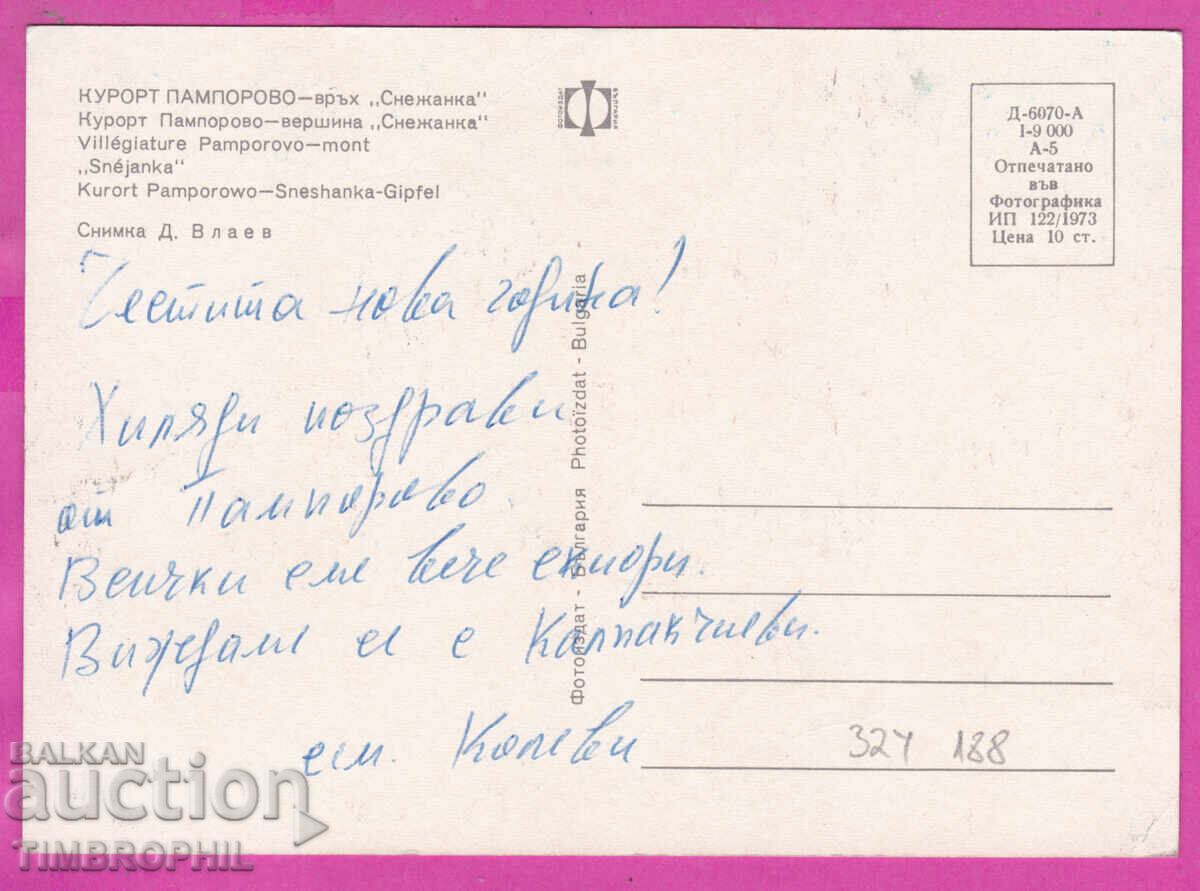 КУРОРТ ПАМПОРОВО—връх „Снежанка"
Курорт Пампорово—вершина „Снежанка"
Villégiature Pamporovo—mont
„Snéjanka"
Kurort Pamporowo—Sneshanka-Gipfel
Снимка Д. Влаев
ФОТОИЗДАТ
Д-6070-А
1-9 000
А-5
Отпечатано
във
Фотографика
ИП 122/1973
Цена 10 ст.
Честита нова година!
Хиляди поздрави
от Пампорово.
Всички сме вече скиори.
Виждаме се с Калпакчиеви.
сем. Колеви
Фотоиздат - България Photoïzdat - Bulgaria
324 188
BALKAN
auction
TIMBROPHIL